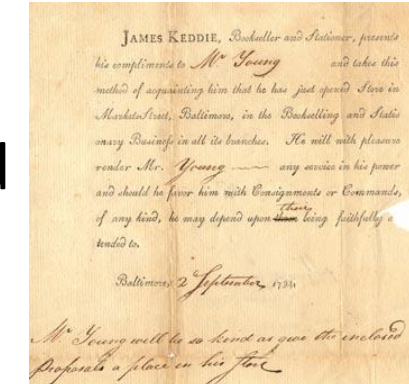 JAMES KEDDIE, Bookseller and Stationer, presents
his compliments to Mr Young and takes this
method of acquainting him that he has just opened Store in
Market-Street, Baltimore, in the Bookselling and Stati
onary Business in all its branches. He will with pleasure
render Mr. Young any service in his power
and should he favor him with Consignments or Commands,
of any kind, he may depend upon their being faithfully a
tended to.
Baltimore, 2 September, 1794
Mr Young will be so kind as give the inclosed
Proposals a place in his Store